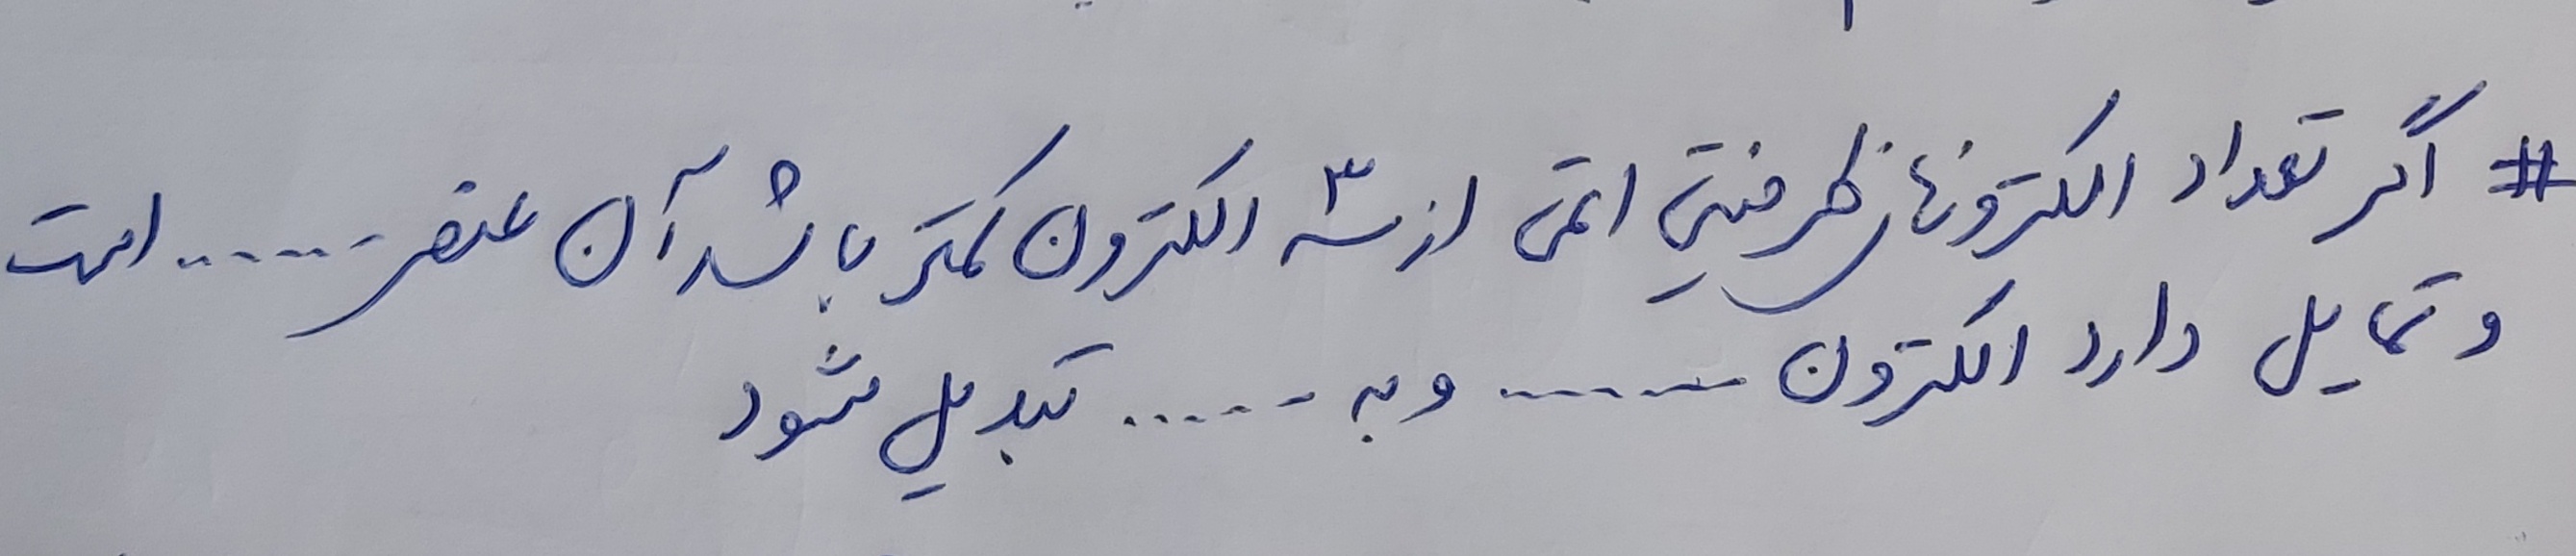 # اگر تعداد الکترونهای ظرفیتی اتمی از سه الکترون کمتر باشد آن عنصر ...... است
و تمایل دارد الکترون ...... و به ...... تبدیل شود